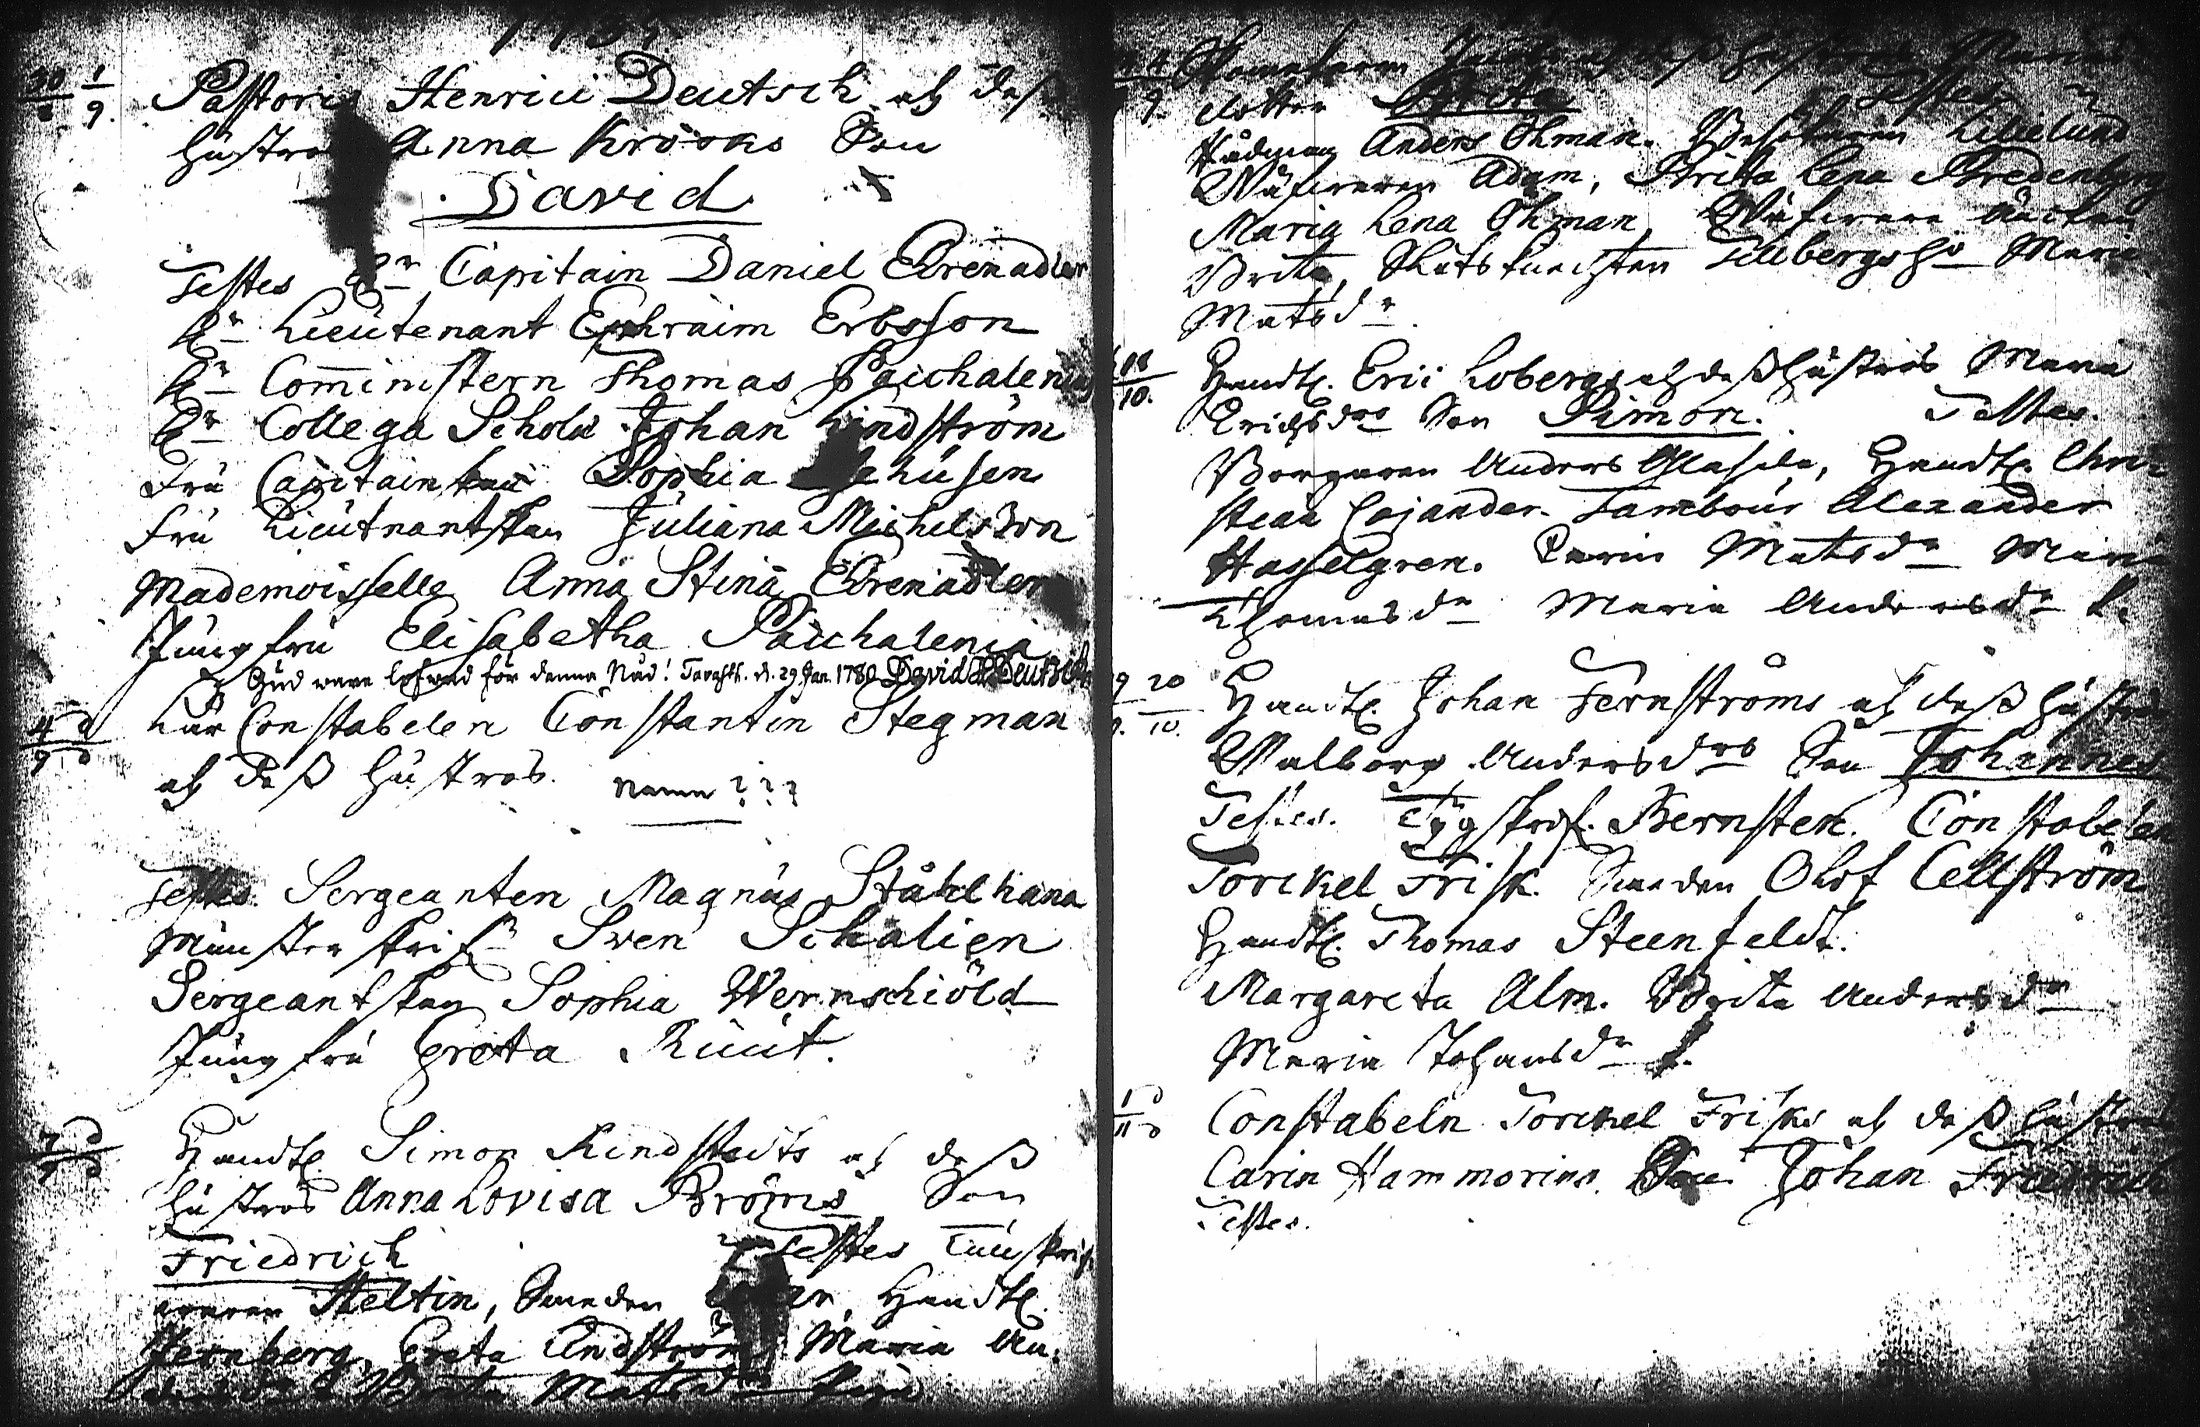 Pastoris Henrici Deutsch och dess
hustros Anna Krooks Son
David
Testes Hr Capitain Daniel Grenadler
Hr Lieutenant Ephraim Erbsson
Hr Comministern Thomas Paichalenius
Hr Collega Scholæ Johan Lindström
Fru Capitainskan Sophia
Fru Lieutnantskan Juliana Michelsson
Mademoisselle Anna Stina Grenadler
Jungfru Elisabetha Paichalenia
Gud ware lofwad för denna Nåd! d. 29 Jan. 1780 David Deutsch
4/9 Constabelen Constantin Stegman
och dess hustros. Namn ???
Testes. Sergeanten Magnus Stålhana
Munsterskrifr Swen Schalien
Sergeantskan Sophia Wernschiöld
Jungfru Greta Ruut.
Handtl. Simon Rindstedts och dess
hustros Anna Lovisa Bröms Son
Friedrich Testes
Steltin, Smeden Handtl.
Jernberg, Greta Lindström Maria An-
Britta Matsdr
dotter Brita Testes
Rådman Anders Öhman. Besökaren Lillelund
Wäfwaren Adam, Brita Lena Bredenberg
Maria Lena Öhman, Wäfware
Brita, Tillbergs ho Maria
Matsdr
18/10. Handtl. Eric Lobergs och dess hustros Maria
Erichsdrs Son Simon. Testes.
Borgaren Anders Handtl. Chri-
stian Cajander. Tambour Alexander
Hasselgren. Carin Matsdr Maria
Thomasdr Maria Andersdr
20/10. Handtl. Johan Fernströms och dess hustros
Walborg Andersdrs Son Johannes
Testes. Tygskrif. Bernsten. Constabelen
Torckel Frisk. Smeden Olof Cellström
Handtl. Thomas Steenfeldt.
Margareta Alm. Brita Andersdr
Maria Johansdr
Constabeln Torckel Frisks och dess hustros
Carin Hammorins Son Johan Friedrich
Testes.